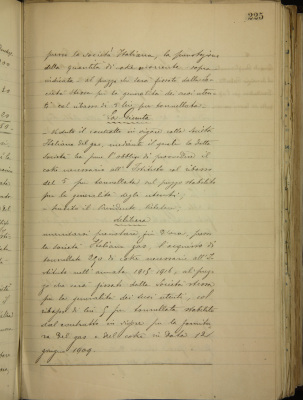 225
presso la Società Italiana, la prenotazione
della quantità di coke occorrente sopra-
indicata al prezzo che sarà fissato dalla So-
cietà stessa per la generalità dei suoi uten-
ti col ribasso di 5 lire per tonnellata.
La Giunta
Veduto il contratto in vigore colla Società
Italiana del gas, mediante il quale la detta
Società ha pure l'obbligo di provvedere il
coke necessario all'Istituto col ribasso
del 5 per tonnellata sul prezzo stabilito
per la generalità degli utenti;
Sentito il Presidente
delibera
presso
la Società Italiana gas, l'acquisto di
tonnellate 290 di coke necessario all'I-
stituto nell'annata 1915 1916, al prez-
zo che sarà fissato dalla Società stessa
per la generalità dei suoi utenti, col
ribasso di lire 5 per tonnellata stabilito
dal contratto in vigore per la fornitu-
ra del gas e del coke in data 12
1909.